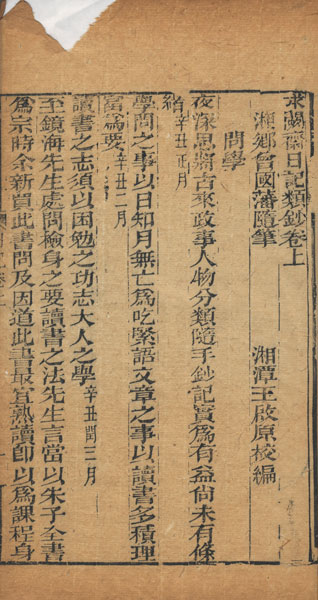 求闕齋日記類鈔卷上
湘鄉曾國藩隨筆 湘潭王啟原校編
問學
夜深思將古來政事人物分類隨手鈔記實爲有益尙未有條
緒辛丑正月
學問之事以日知月無亡爲吃緊語文章之事以讀書多積理
富爲要辛丑二月
讀書之志須以困勉之功志大人之學辛丑閏三月
至鏡海先生處問檢身之要讀書之法先生言當以朱子全書
爲宗時余新買此書問及因道此書最宜熟讀即以爲課程身